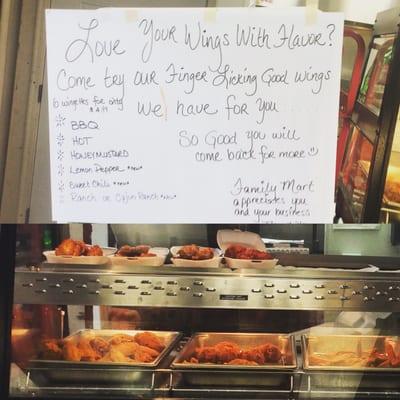 Love Your Wings With Flavor?
Come try our Finger Licking Good wings
we have for you
6 wingettes for only
BBQ
HOT
HONEYMUSTARD
Lemon Pepper *new*
Sweet Chili *new*
Ranch or Cajun Ranch *new*
So Good you will
come back for more
Family Mart
appreciates you
and your business